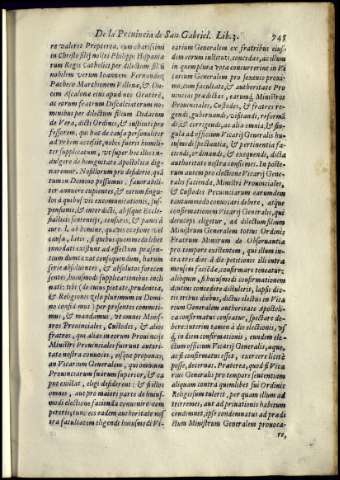 De la Prouincia de San Gabriel. Lib.3. 945
re valeret Properea, cum charissimi
in Christo filij nostri Philippi Hispania
rum Regis Catholici per dilectum filiũ
nobilem verum Ioannem Fernandez
Pacheco Marchionem Villena, & Du
cem Ascalona eius apud nos Oratorē,
ac eorum fratrum Discalciatorum no-
minibus per dilectum filium Didacum
de Vera, dicti Ordinis, & instituti pro
fessorem, qui hac de causa personaliter
ad vrbem accessit, nobis fuerit humili-
ter supplicatum, vt super his illis in-
dulgere de benignitate Apostolica dig-
naremur. Nos illorum pro desiderio quā
tum in Domino possumus, fauorabili-
ter annuere cupientes, & eorum singu-
los à quibusuis excommunicationis, sus-
pensionis, & interdicti, alijsque Eccle-
siasticis sententijs, censuris, & pœnis à
iure, l. ab homine, quauis occasione vel
causa, latis, si quibus quomodolibet
innodati existunt ad effectum præsen-
tium dumtaxat consequendum, harum
serie absoluentes, & absolutos fore cen
sentes, huiusmodi supplicationibus incli
nati: tibi (de cuius pietate, prudentia,
& Religionis zelo plurimum in Domi
no confidimus) per presentes committi-
mus, & mandamus, vt omnes Minis-
tros Prouinciales, Custodes, & alios
fratres, qui alias in eorum Prouincijs
Ministri Prouinciales fuerunt autori-
tate nostra conuoces, eisque proponas,
an Vicarium Generalem, quo omnium
Prouinciarum suarum superior, & ca
put existat, elegi desiderent: & si illos
omnes, aut pro maiori parte de huius-
modi electione facienda conuenire com
pereris, tunc eis eadem authoritate nos
tra facultatem eligendi huiusmodi Vi-
carium Generalem ex fratribus eius-
dem eorum instituti, concedas, ac illum
in quem plura vota concurrerint in Vi
carium Generalem pro sexennio proxi-
mo, cum facultate, & authoritate Pro
uincias prædictas, earumq́; Ministros
Prouinciales, Custodes, & fratres re-
gendi, gubernandi, visitandi, reformā
di, & corrigendi, ac alia omnia, & sin-
gula ad officium Vicarij Generalis hu-
iusmodi spectantia, & pertinentia fa-
ciendi, ordinandi, & exequendi, dicta
authoritate nostra confirmes. In poste-
rum autem pro electione Vicarij Gene-
ralis facienda, Ministri Prouinciales,
& Custodes Prouinciarum earundem
tantummodo conuocari debeto, atque
confirmationem Vicarij Generalis, qui
deinceps eligetur, ad dilectum filium
Ministrum Generalem totius Ordinis
Fratrum Minorum de Obseruantia
pro tempore existentem, qui illum in-
tra tres dies à die petitionis illi intra
mensem faciēdæ, confirmare teneatur:
alioquin, si huiusmodi confirmationem
diutius concedere distulerit, lapsis dic-
tis tribus diebus, dictus electus in Vica
rium Generalem authoritate Apostoli-
ca confirmatus censeatur, spectare de-
bere: interim tamen à die electionis, vs
q́; in diem confirmationis, eundem ele-
ctum officium Vicarij Generalis, aquè,
ac si confirmatus esset, exercere licitè
posse, decernas. Præterea, quod si Vica
rius Generalis pro tempore sententiam
aliquam contra quemlibet sui Ordinis
Religiosum tulerit, per quam illum ad
triremes, aut ad priuationis habitum
condemnet, ipse condemnatus ad prædi
ctum Ministrum Generalem prouoca-
re,